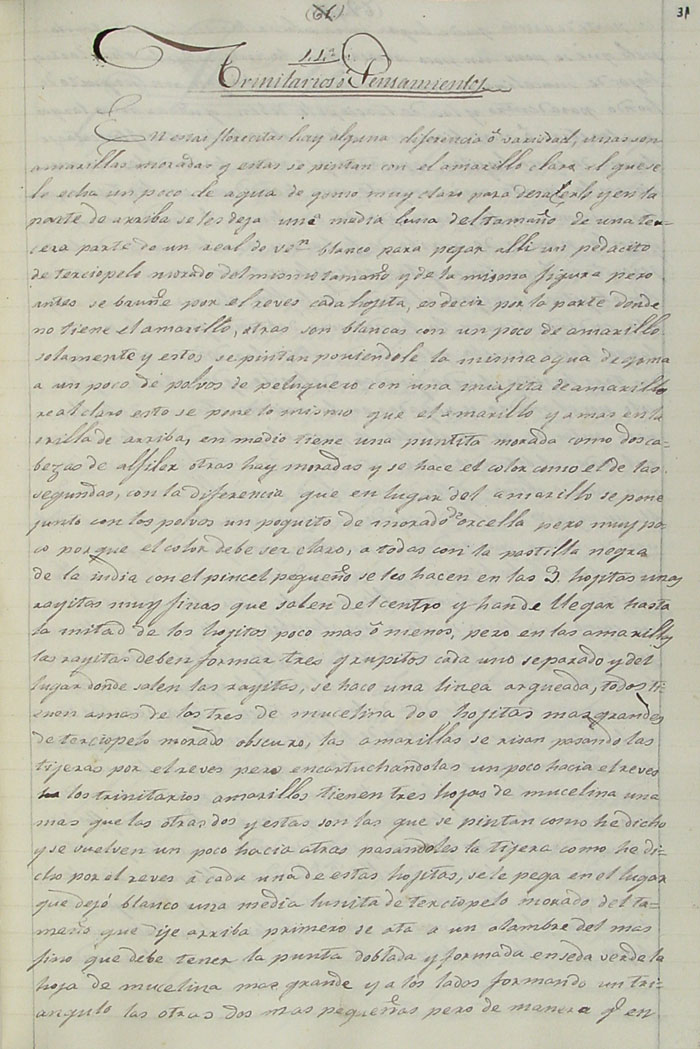 (61.)
31
44ª
Trinitarios ó Pensamientos
En estas florecitas hay alguna diferencia ó variedad, unas son
amarillas moradas y estas se pintan con el amarillo claro el que se
le echa un poco de agua de gomo muy claro para desacerlo y en la
parte de arriba se les deja una media luna del tamaño de una ter-
cera parte de un real de von blanco para pegar alli un pedacito
de terciopelo morado del mismo tamaño y de la misma figura pero
antes se bruñe por el reves cada hojita, es decir por la parte donde
no tiene el amarillo, otras son blancas con un poco de amarillo
solamente y estos se pintan poniendole la misma agua de goma
a un poco de polvos de peluquero con una miajita de amarillo
real claro esto se pone lo mismo que el amarillo y amas en la
orilla de arriba, en medio tiene una puntita morada como dos ca-
bezas de alfiler otras hay moradas y se hace el color como el de las
segundas, con la diferencia que en lugar del amarillo se pone
junto con los polvos un poquito de morado de orcella pero muy po-
co porque el color debe ser claro, a todas con la pastilla negra
de la india con el pincel pequeño se les hacen en las 3 hojitas unas
rayitas muy finas que salen del centro y han de llegar hasta
la mitad de las hojitas poco mas ó menos, pero en las amarillas
las rayitas deben formar tres grupitos cada uno separado y del
lugar donde salen las rayitas, se hace una linea arqueada, todos ti-
enen amas de los tres de mucelina dos hojitas mas grandes
de terciopelo morado obscuro, las amarillas se risan pasando las
tijeras por el reves pero encartuchandolas un poco hacia el reves
los trinitarios amarillos tienen tres hojas de mucelina una
mas que las otras dos y estas son las que se pintan como he dicho
y se vuelven un poco hacia atras pasandoles la tijera como he di-
cho por el reves á cada una de estas hojitas, se le pega en el lugar
que dejó blanco una media lunita de terciopelo morado del ta-
maño que dije arriba primero se ata a un alambre del mas
fino que debe tener la punta doblada y formada en seda verde la
hoja de mucelina mas grande y a los lados formando un tri-
angulo las otras dos mas pequeñas pero de manera q. en